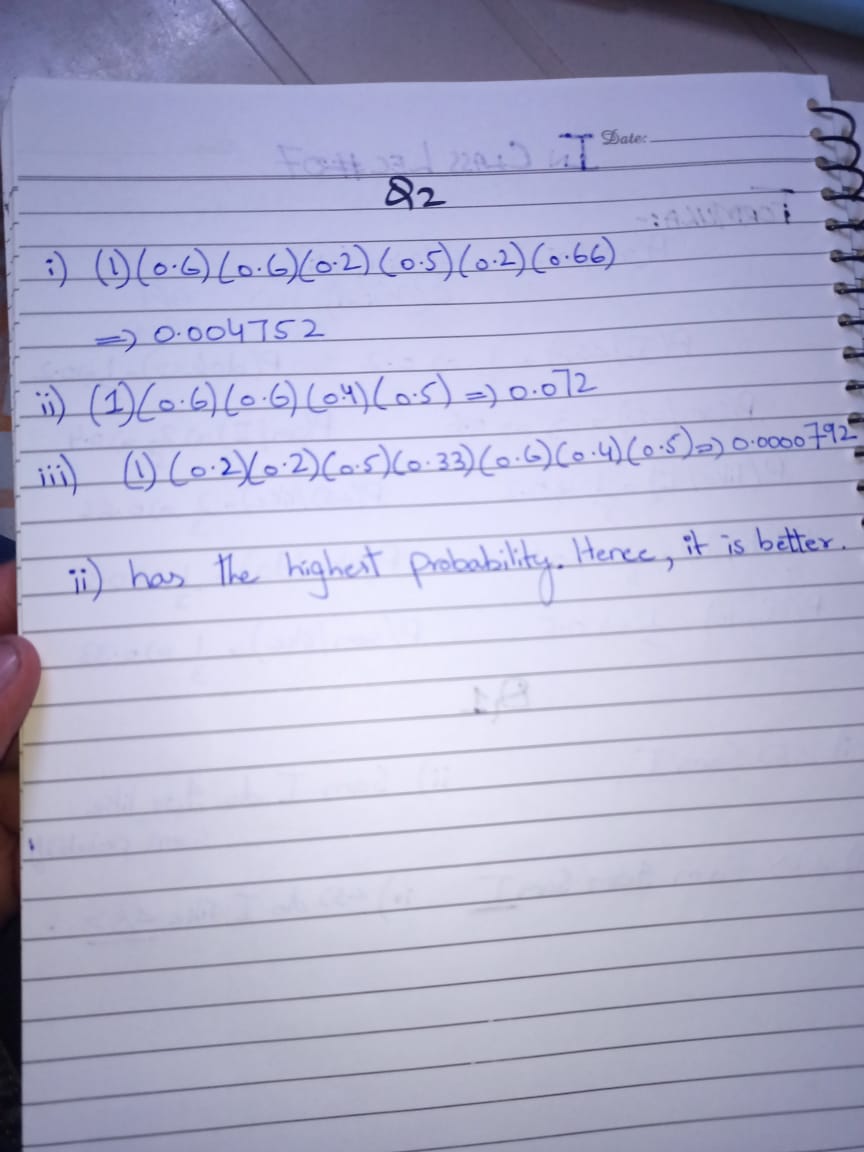 Date:
Q2
i) (1)(0.6)(0.6)(0.2)(0.5)(0.2)(0.66)
=> 0.004752
ii) (1)(0.6)(0.6)(0.4)(0.5) => 0.072
iii) (1)(0.2)(0.2)(0.5)(0.33)(0.6)(0.4)(0.5) => 0.0000792
ii) has the highest probability. Hence, it is better.